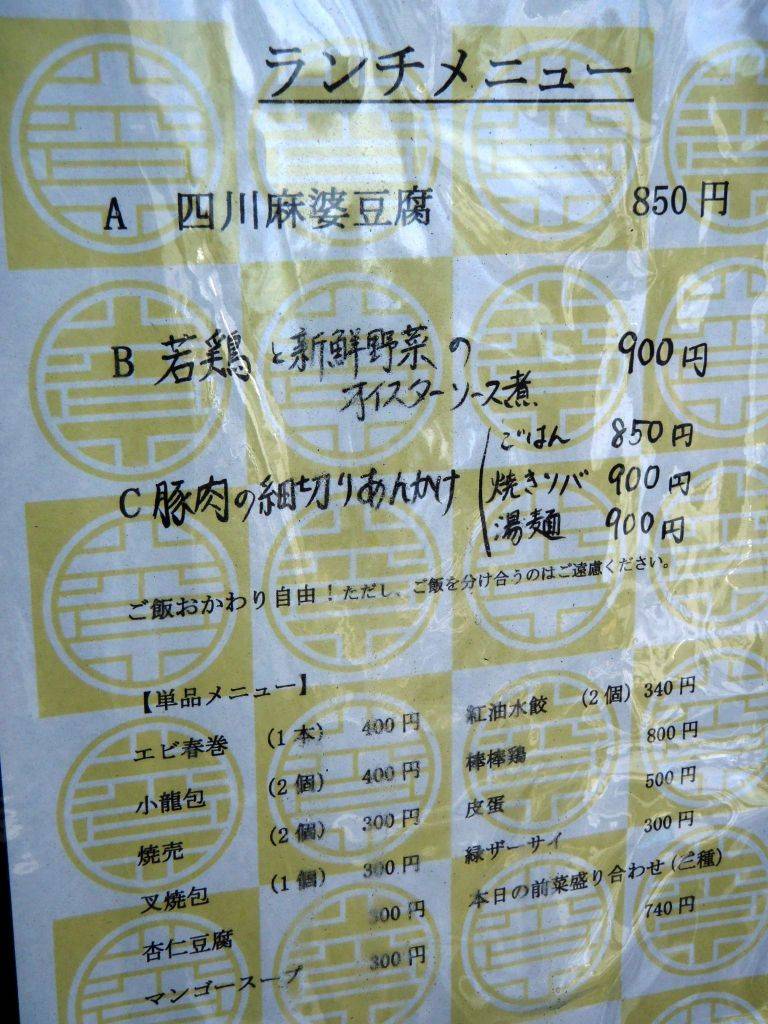 ランチメニュー
A 四川麻婆豆腐 850円
B 若鶏と新鮮野菜の 900円
オイスターソース煮
C 豚肉の細切りあんかけ
ごはん 850円
焼きソバ 900円
湯麺 900円
ご飯おかわり自由！ただし、ご飯を分け合うのはご遠慮ください。
【単品メニュー】
エビ春巻 (1本) 400円
小龍包 (2個) 400円
焼売 (2個) 300円
叉焼包 (1個) 300円
杏仁豆腐 300円
マンゴースープ 300円
紅油水餃 (2個) 340円
棒棒鶏 800円
皮蛋 500円
緑ザーサイ 300円
本日の前菜盛り合わせ(三種)
740円